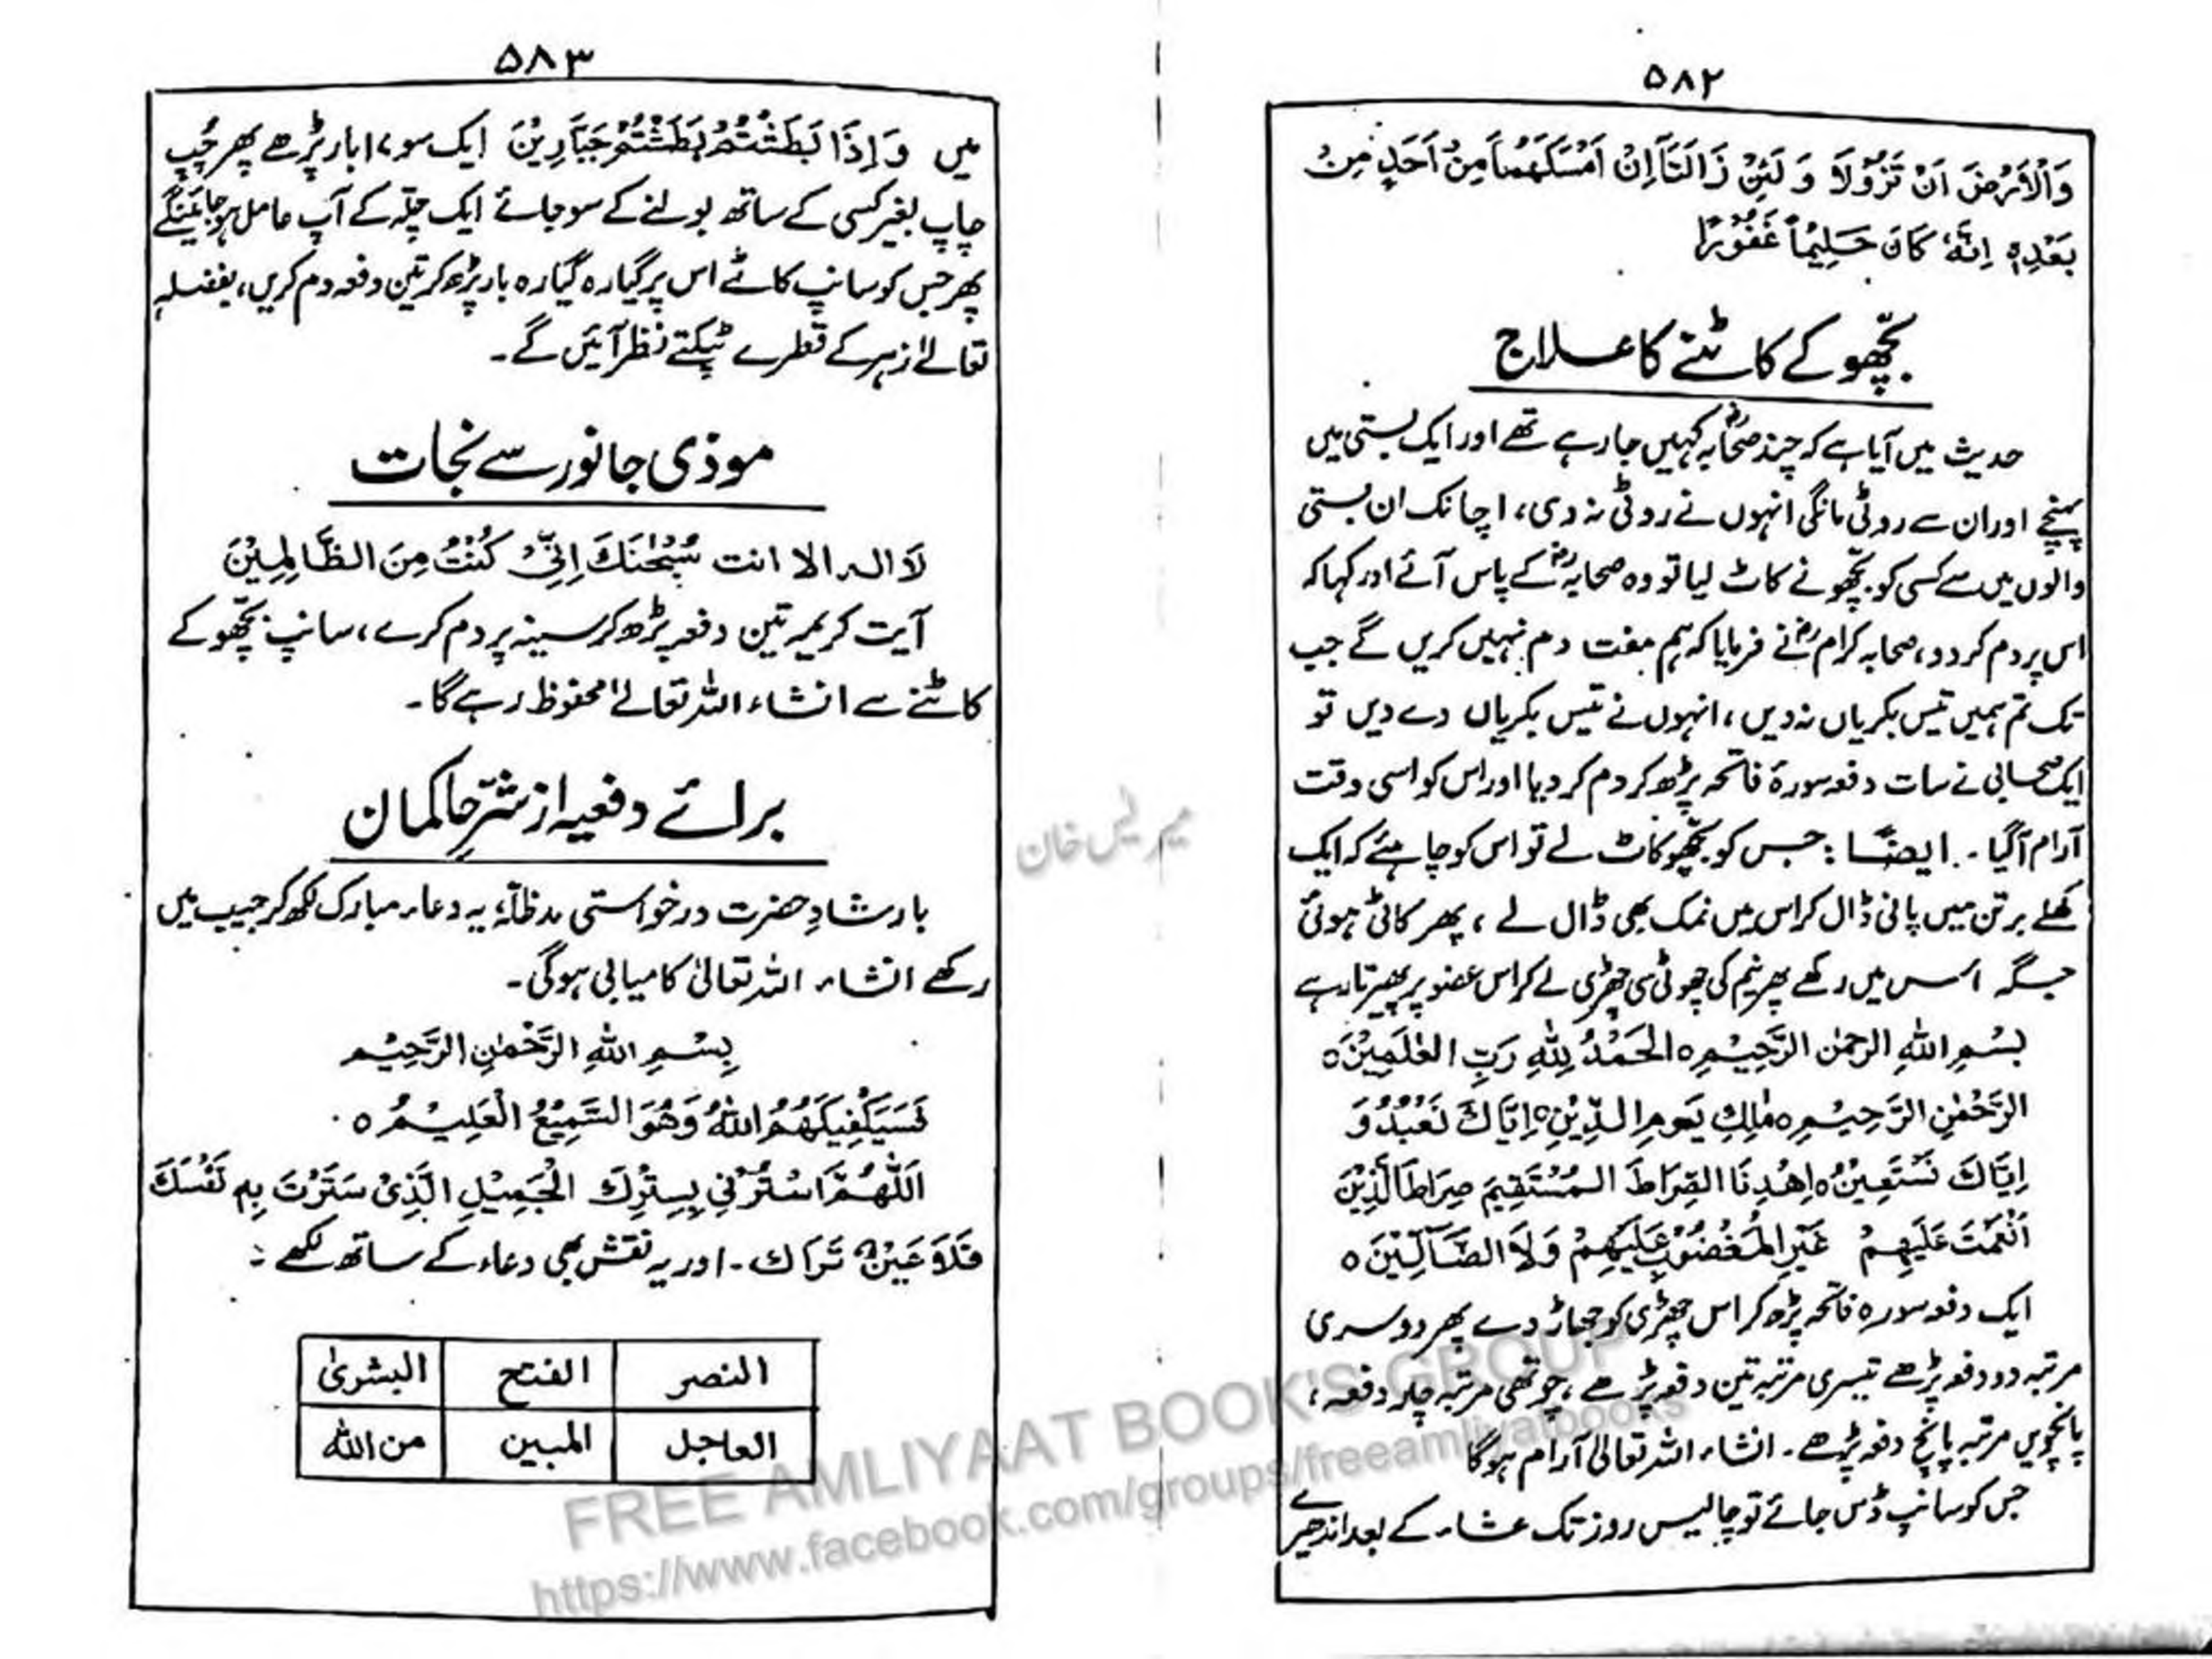 ۵۸۲
وَالْاَرْضَ اَنْ تَزُوْلَا وَ لَئِنْ زَالَتَآ اِنْ اَمْسَكَهُمَا مِنْ اَحَدٍ مِنْ
بَعْدِهٖ اِنَّهٗ كَانَ حَلِيْمًا غَفُوْرًا
بچّھو کے کاٹنے کا علاج
حدیث میں آیا ہے کہ چند صحابہؓ کہیں جا رہے تھے اور ایک بستی میں
پہنچے اور ان سے روٹی مانگی انہوں نے روٹی نہ دی، اچانک ان بستی
والوں میں سے کسی کو بچّھو نے کاٹ لیا تو وہ صحابہؓ کے پاس آئے اور کہا کہ
اس پر دم کر دو، صحابہ کرامؓ نے فرمایا کہ ہم مفت دم نہیں کریں گے جب
تک تم ہمیں تیس بکریاں نہ دیں، انہوں نے تیس بکریاں دے دیں تو
ایک صحابی نے سات دفعہ سورۂ فاتحہ پڑھ کر دم کر دیا اور اس کو اسی وقت
آرام آگیا ۔ ایضًا : جس کو بچّھو کاٹ لے تو اس کو چاہئے کہ ایک
کھلے برتن میں پانی ڈال کر اس میں نمک بھی ڈال لے ، پھر کاٹی ہوئی
جگہ اس میں رکھے پھر نیم کی چھوٹی سی چھڑی لے کر اس عضو پر پھیرتا رہے
بِسْمِ اللّٰهِ الرحمٰن الرَّحِيْمِ ٥ اَلْحَمْدُ لِلّٰهِ رَبِّ الْعٰلَمِيْنَ ٥
الرَّحْمٰنِ الرَّحِيْمِ ٥ مٰلِكِ يَومِ الدِّيْنِ ٥ اِيَّاكَ نَعْبُدُ وَ
اِيَّاكَ نَسْتَعِيْنُ ٥ اِهْدِنَا الصِّرَاطَ الْمُسْتَقِيْمَ صِرَاطَ الَّذِيْنَ
اَنْعَمْتَ عَلَيْهِمْ غَيْرِ الْمَغْضُوْبِ عَلَيْهِمْ وَلَا الضَّآلِّيْنَ ٥
ایک دفعہ سورہ فاتحہ پڑھ کر اس چھڑی کو جھاڑ دے پھر دوسری
مرتبہ دو دفعہ پڑھے تیسری مرتبہ تین دفعہ پڑھے ، چوتھی مرتبہ چار دفعہ ،
پانچویں مرتبہ پانچ دفعہ پڑھے ۔ انشاء اللہ تعالیٰ آرام ہوگا
جس کو سانپ ڈس جائے تو چالیس روز تک عشاء کے بعد اندھیرے
۵۸۳
میں وَ اِذَا بَطَشْتُمْ بَطَشْتُمْ جَبَّارِيْنَ ایک سو ١٠ بار پڑھے پھر چُپ
چاپ بغیر کسی کے ساتھ بولنے کے سو جائے ایک چلّہ کے آپ عامل ہو جائینگے
پھر جس کو سانپ کاٹے اس پر گیارہ گیارہ بار پڑھ کر تین دفعہ دم کریں، بفضلہٖ
تعالےٰ زہر کے قطرے ٹپکتے نظر آئیں گے ۔
موذی جانور سے نجات
لَا الہ الا انت سُبْحٰنَكَ اِنِّيْ كُنْتُ مِنَ الظَّالِمِيْنَ
آیت کریمہ تین دفعہ پڑھ کر سینہ پر دم کرے، سانپ بچّھو کے
کاٹنے سے انشاء اللہ تعالےٰ محفوظ رہے گا ۔
برائے دفعیہ از شرِّ حاکمان
بارشادِ حضرت درخواستی مدظلّہٗ یہ دعاء مبارک لکھ کر جیب میں
رکھے انشاء اللہ تعالیٰ کامیابی ہوگی ۔
بِسْمِ اللّٰهِ الرَّحْمٰنِ الرَّحِيْمِ
فَسَيَكْفِيْكَهُمُ اللّٰهُ وَهُوَ السَّمِيْعُ الْعَلِيْمُ ٥
اَللّٰهُمَّ اسْتُرْنِي بِسِتْرِكَ الْجَمِيْلِ الَّذِيْ سَتَرْتَ بِهٖ نَفْسَكَ
فَلَا عَيْنٌ تَرَاكَ ۔ اور یہ نقش بھی دعاء کے ساتھ لکھے :
النصر الفتح البشریٰ
العاجل المبین من اللّٰه
FREE AMLIYAAT BOOK'S GROUP
https://www.facebook.com/groups/freeamliyatbooks